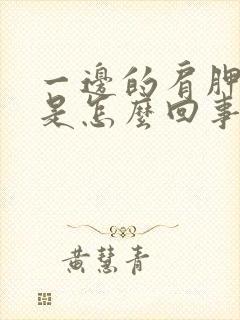 一邊的肩胛
是怎麼回事
黃慧青